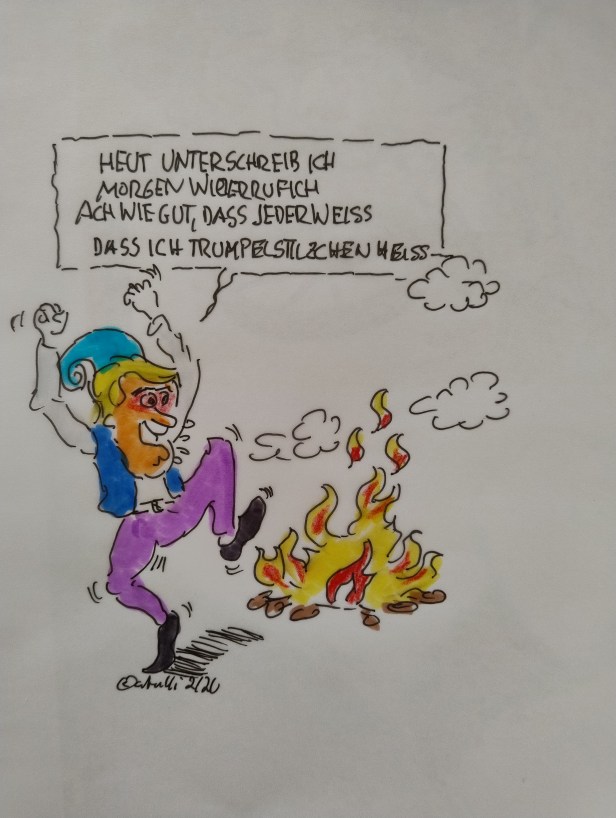 HEUT UNTERSCHREIB ICH
MORGEN WIDERRUF ICH
ACH WIE GUT, DASS JEDER WEISS
DASS ICH TRUMPELSTILZCHEN HEISS